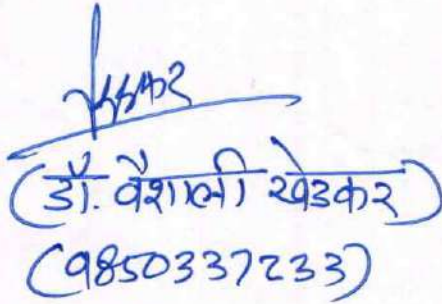 (डॉ. वैशाली खेडकर)
(9850337233)